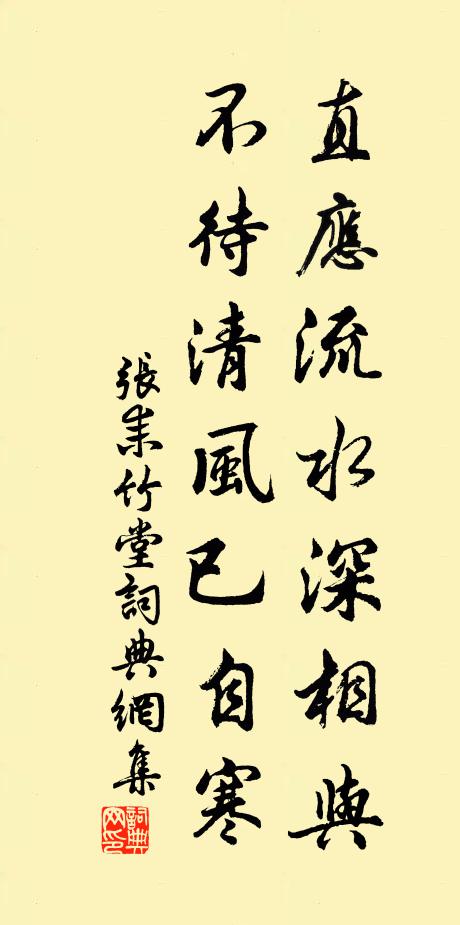 直應流水深相與
不待清風已自寒
張耒竹堂詞典網集
詞典网印